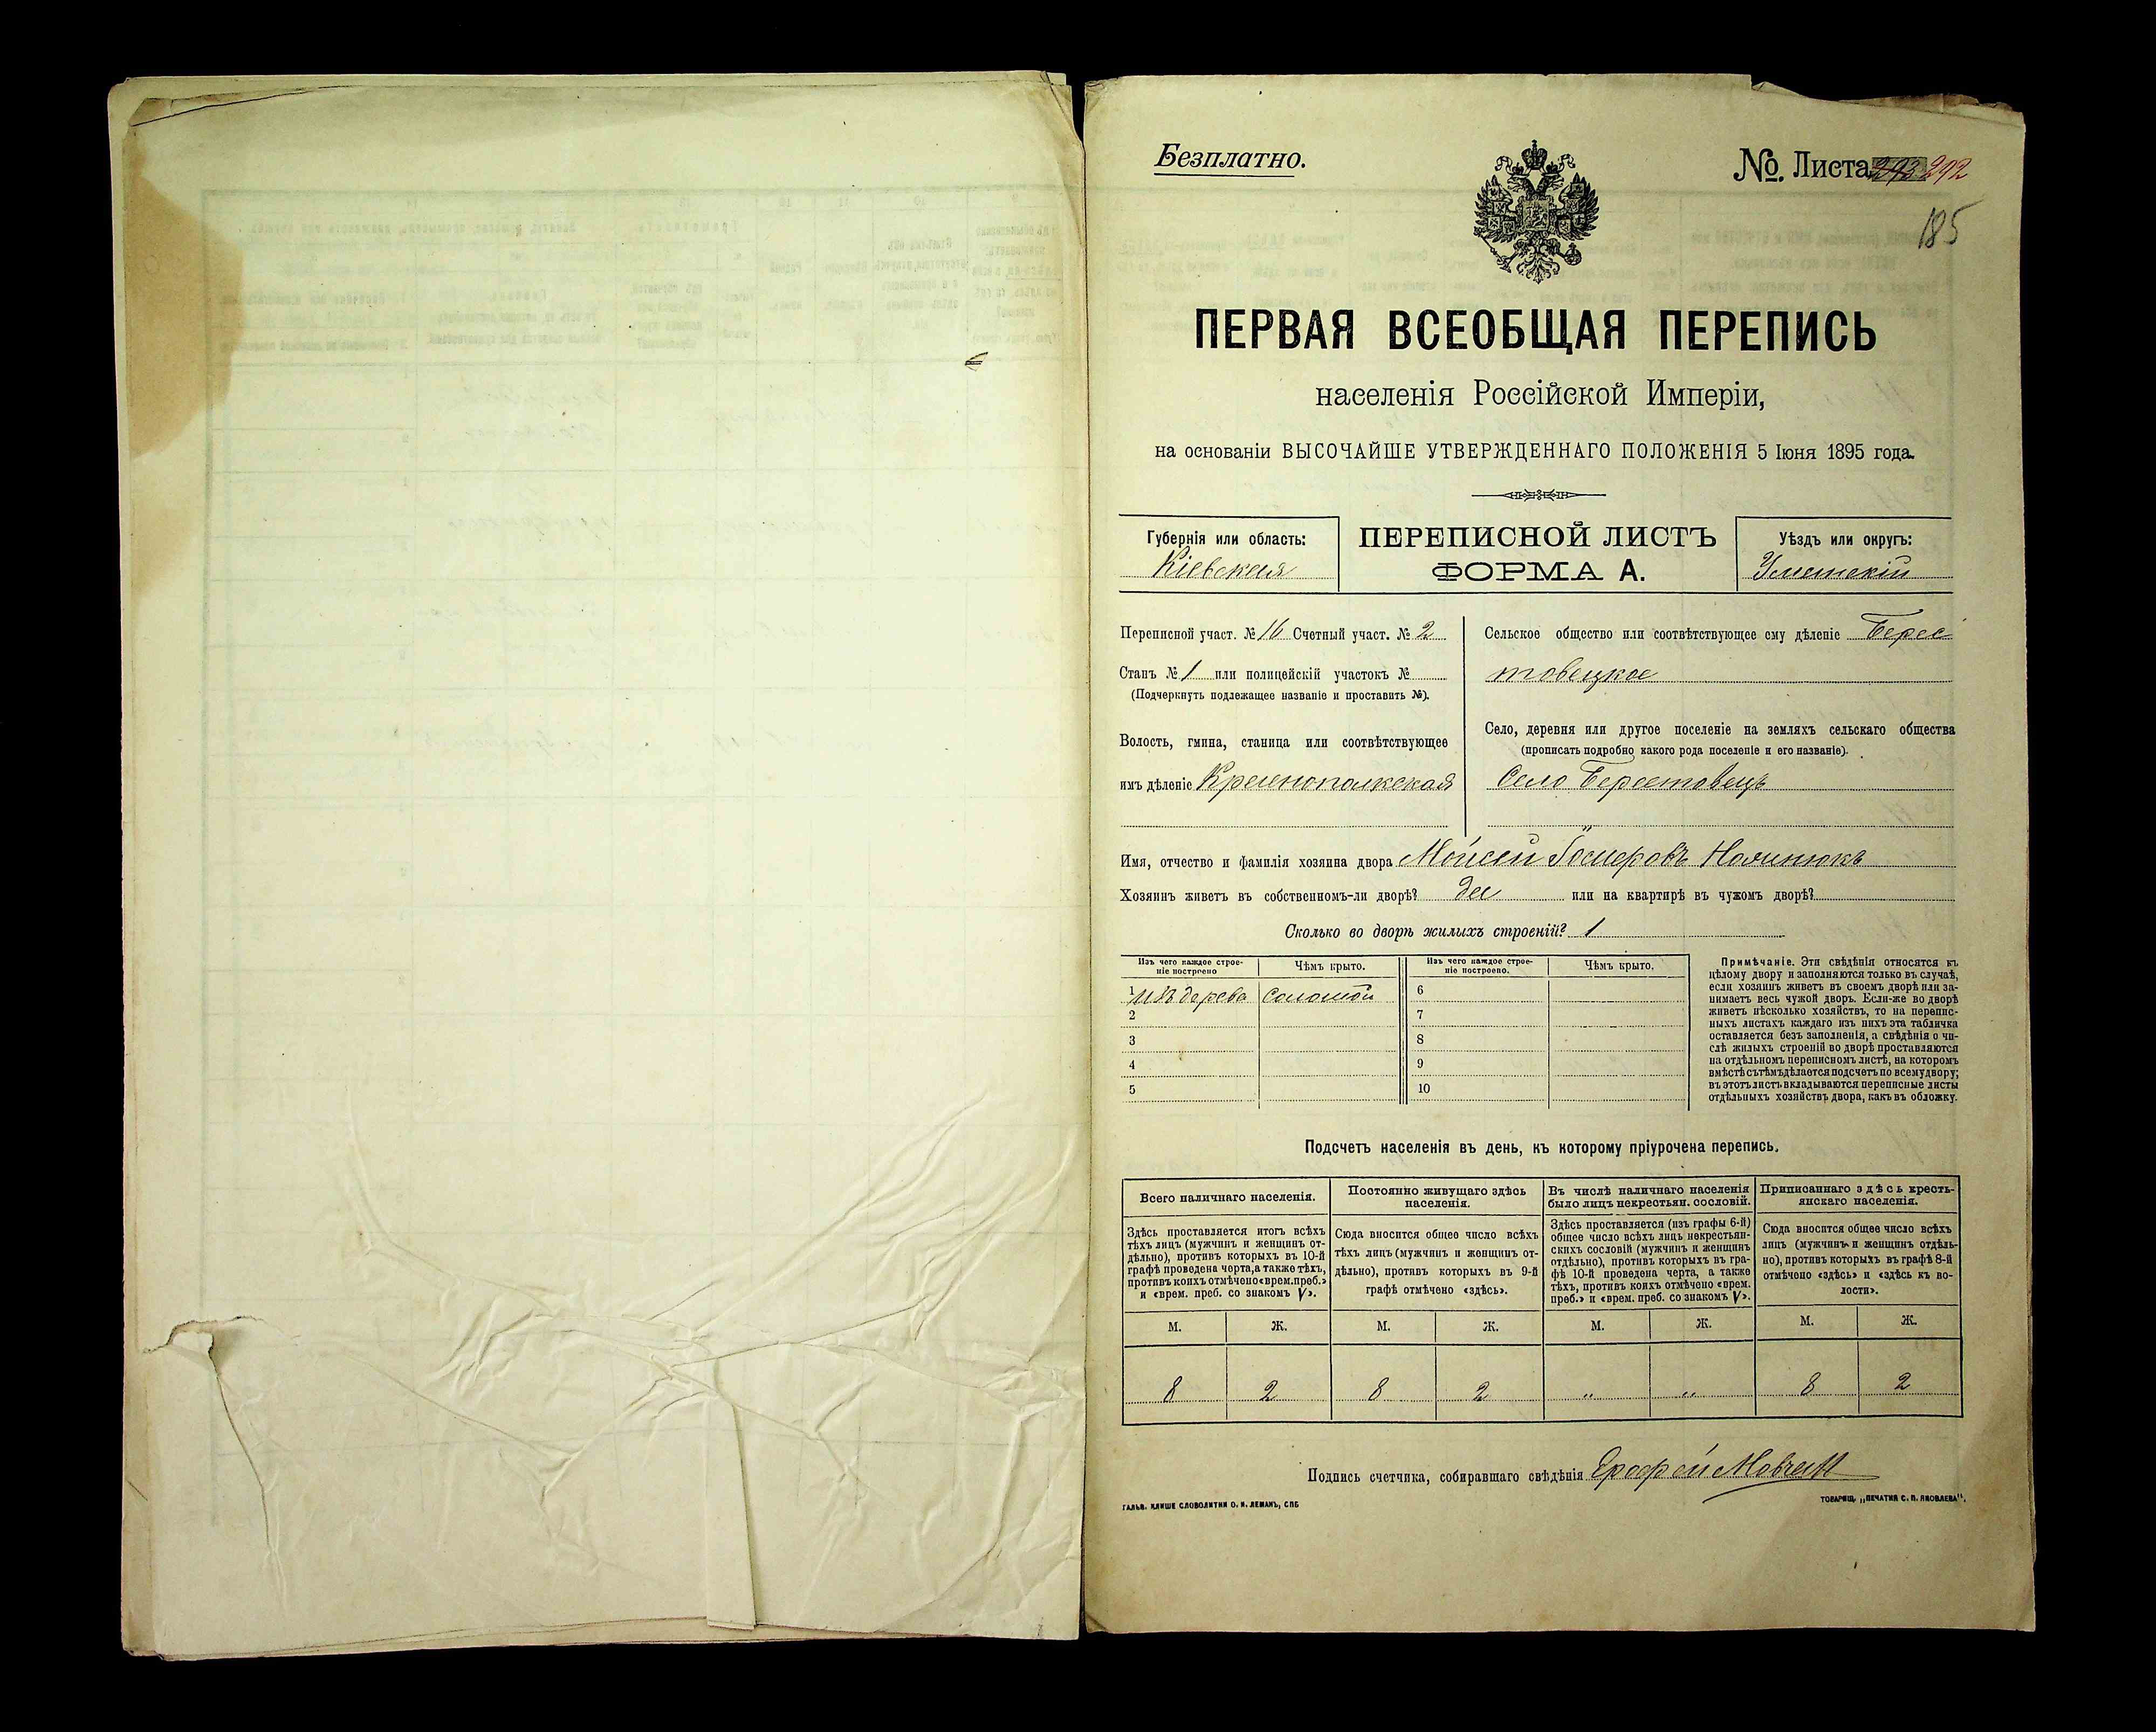 Безплатно.
№. Листа 292
185
ПЕРВАЯ ВСЕОБЩАЯ ПЕРЕПИСЬ
населенія Россійской Имперіи,
на основаніи ВЫСОЧАЙШЕ УТВЕРЖДЕННАГО ПОЛОЖЕНІЯ 5 Іюня 1895 года.
Губернія или область:
Кіевская
ПЕРЕПИСНОЙ ЛИСТЪ
ФОРМА А.
Уѣздъ или округъ:
Уманскій
Переписной участ. № 16 Счетный участ. № 2
Станъ № 1 или полицейскій участокъ №
(Подчеркнуть подлежащее названіе и проставить №).
Волость, гмина, станица или соотвѣтствующее
имъ дѣленіе
Сельское общество или соотвѣтствующее ему дѣленіе Берес
товецкое
Село, деревня или другое поселеніе на земляхъ сельскаго общества
(прописать подробно какого рода поселеніе и его названіе).
Село Берестовецъ
Имя, отчество и фамилія хозяина двора Мойсей
Хозяинъ живетъ въ собственномъ-ли дворѣ? да или на квартирѣ въ чужомъ дворѣ?
Сколько во дворѣ жилыхъ строеній? 1
Изъ чего каждое строе-
ніе построено
Чѣмъ крыто.
Изъ чего каждое строе-
ніе построено.
Чѣмъ крыто.
1 изъ дерева соломой
2
3
4
5
6
7
8
9
10
Примѣчаніе. Эти свѣдѣнія относятся къ
цѣлому двору и заполняются только въ случаѣ,
если хозяинъ живетъ въ своемъ дворѣ или за-
нимаетъ весь чужой дворъ. Если-же во дворѣ
живетъ нѣсколько хозяйствъ, то на перепис-
ныхъ листахъ каждаго изъ нихъ эта табличка
оставляется безъ заполненія, а свѣдѣнія о чи-
слѣ жилыхъ строеній во дворѣ проставляются
на отдѣльномъ переписномъ листѣ, на которомъ
вмѣстѣ съ тѣмъ дѣлается подсчетъ по всему двору;
въ этотъ листъ вкладываются переписные листы
отдѣльныхъ хозяйствъ двора, какъ въ обложку.
Подсчетъ населенія въ день, къ которому пріурочена перепись.
Всего наличнаго населенія.
Здѣсь проставляется итогъ всѣхъ
тѣхъ лицъ (мужчинъ и женщинъ от-
дѣльно), противъ которыхъ въ 10-й
графѣ проведена черта, а также тѣхъ,
противъ коихъ отмѣчено «врем. преб.»
и «врем. преб. со знакомъ V».
Постоянно живущаго здѣсь
населенія.
Сюда вносится общее число всѣхъ
тѣхъ лицъ (мужчинъ и женщинъ от-
дѣльно), противъ которыхъ въ 9-й
графѣ отмѣчено «здѣсь».
Въ числѣ наличнаго населенія
было лицъ некрестьян. сословій.
Здѣсь проставляется (изъ графы 6-й)
общее число всѣхъ лицъ некрестьян-
скихъ сословій (мужчинъ и женщинъ
отдѣльно), противъ которыхъ въ гра-
фѣ 10-й проведена черта, а также
тѣхъ, противъ коихъ отмѣчено «врем.
преб.» и «врем. преб. со знакомъ V».
Приписаннаго здѣсь кресть-
янскаго населенія.
Сюда вносится общее число всѣхъ
лицъ (мужчинъ и женщинъ отдѣль-
но), противъ которыхъ въ графѣ 8-й
отмѣчено «здѣсь» и «здѣсь къ во-
лости».
М. Ж. М. Ж. М. Ж. М. Ж.
8 2 8 2 „ „ 8 2
Подпись счетчика, собиравшаго свѣдѣнія Ерофей Мовчан
ГАЛЬВ. КЛИШЕ СЛОВОЛИТНИ О. И. ЛЕМАНЪ, СПБ
ТОВАРИЩ. „ПЕЧАТНЯ С. П. ЯКОВЛЕВА“.